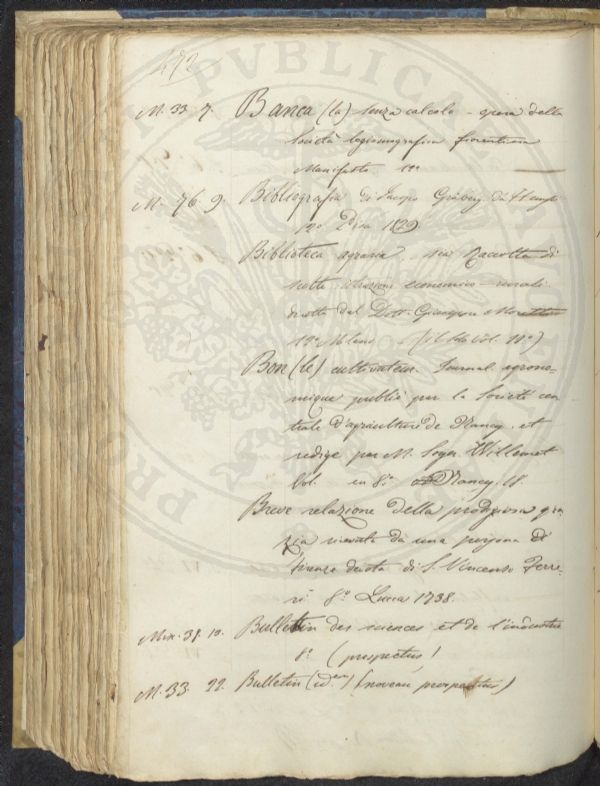 472
M. 33. 7. Banca (la) senza calcolo - opera della
Società logismografica fiorentina
Manifesto 12º
M. 76. 9. Bibliografia di Jacopo Gråberg da Hemsö
12º Pisa 1829
Biblioteca agraria sia Raccolta di
scelte istruzioni economico-rurali
diretta dal Dott. Giuseppe Moretti
12º Milano
Bon (le) cultivateur. Journal agrono-
mique publié par la Societé cen
trale d'agriculture de Nancy. et
redigé par M. Soyer Willemet
Vol. en 8º Nancy. 18.
Breve relazione della prodigiosa gra
zia ricevuta da una persona di
Firenze devota di S. Vincenzo Ferre-
ri 8º Lucca 1738.
Mix. 31. 10. Bulletin des sciences et de l'industrie
8º (prospectus)
M. 33. 22. Bulletin (idem) (noveau prospectus)